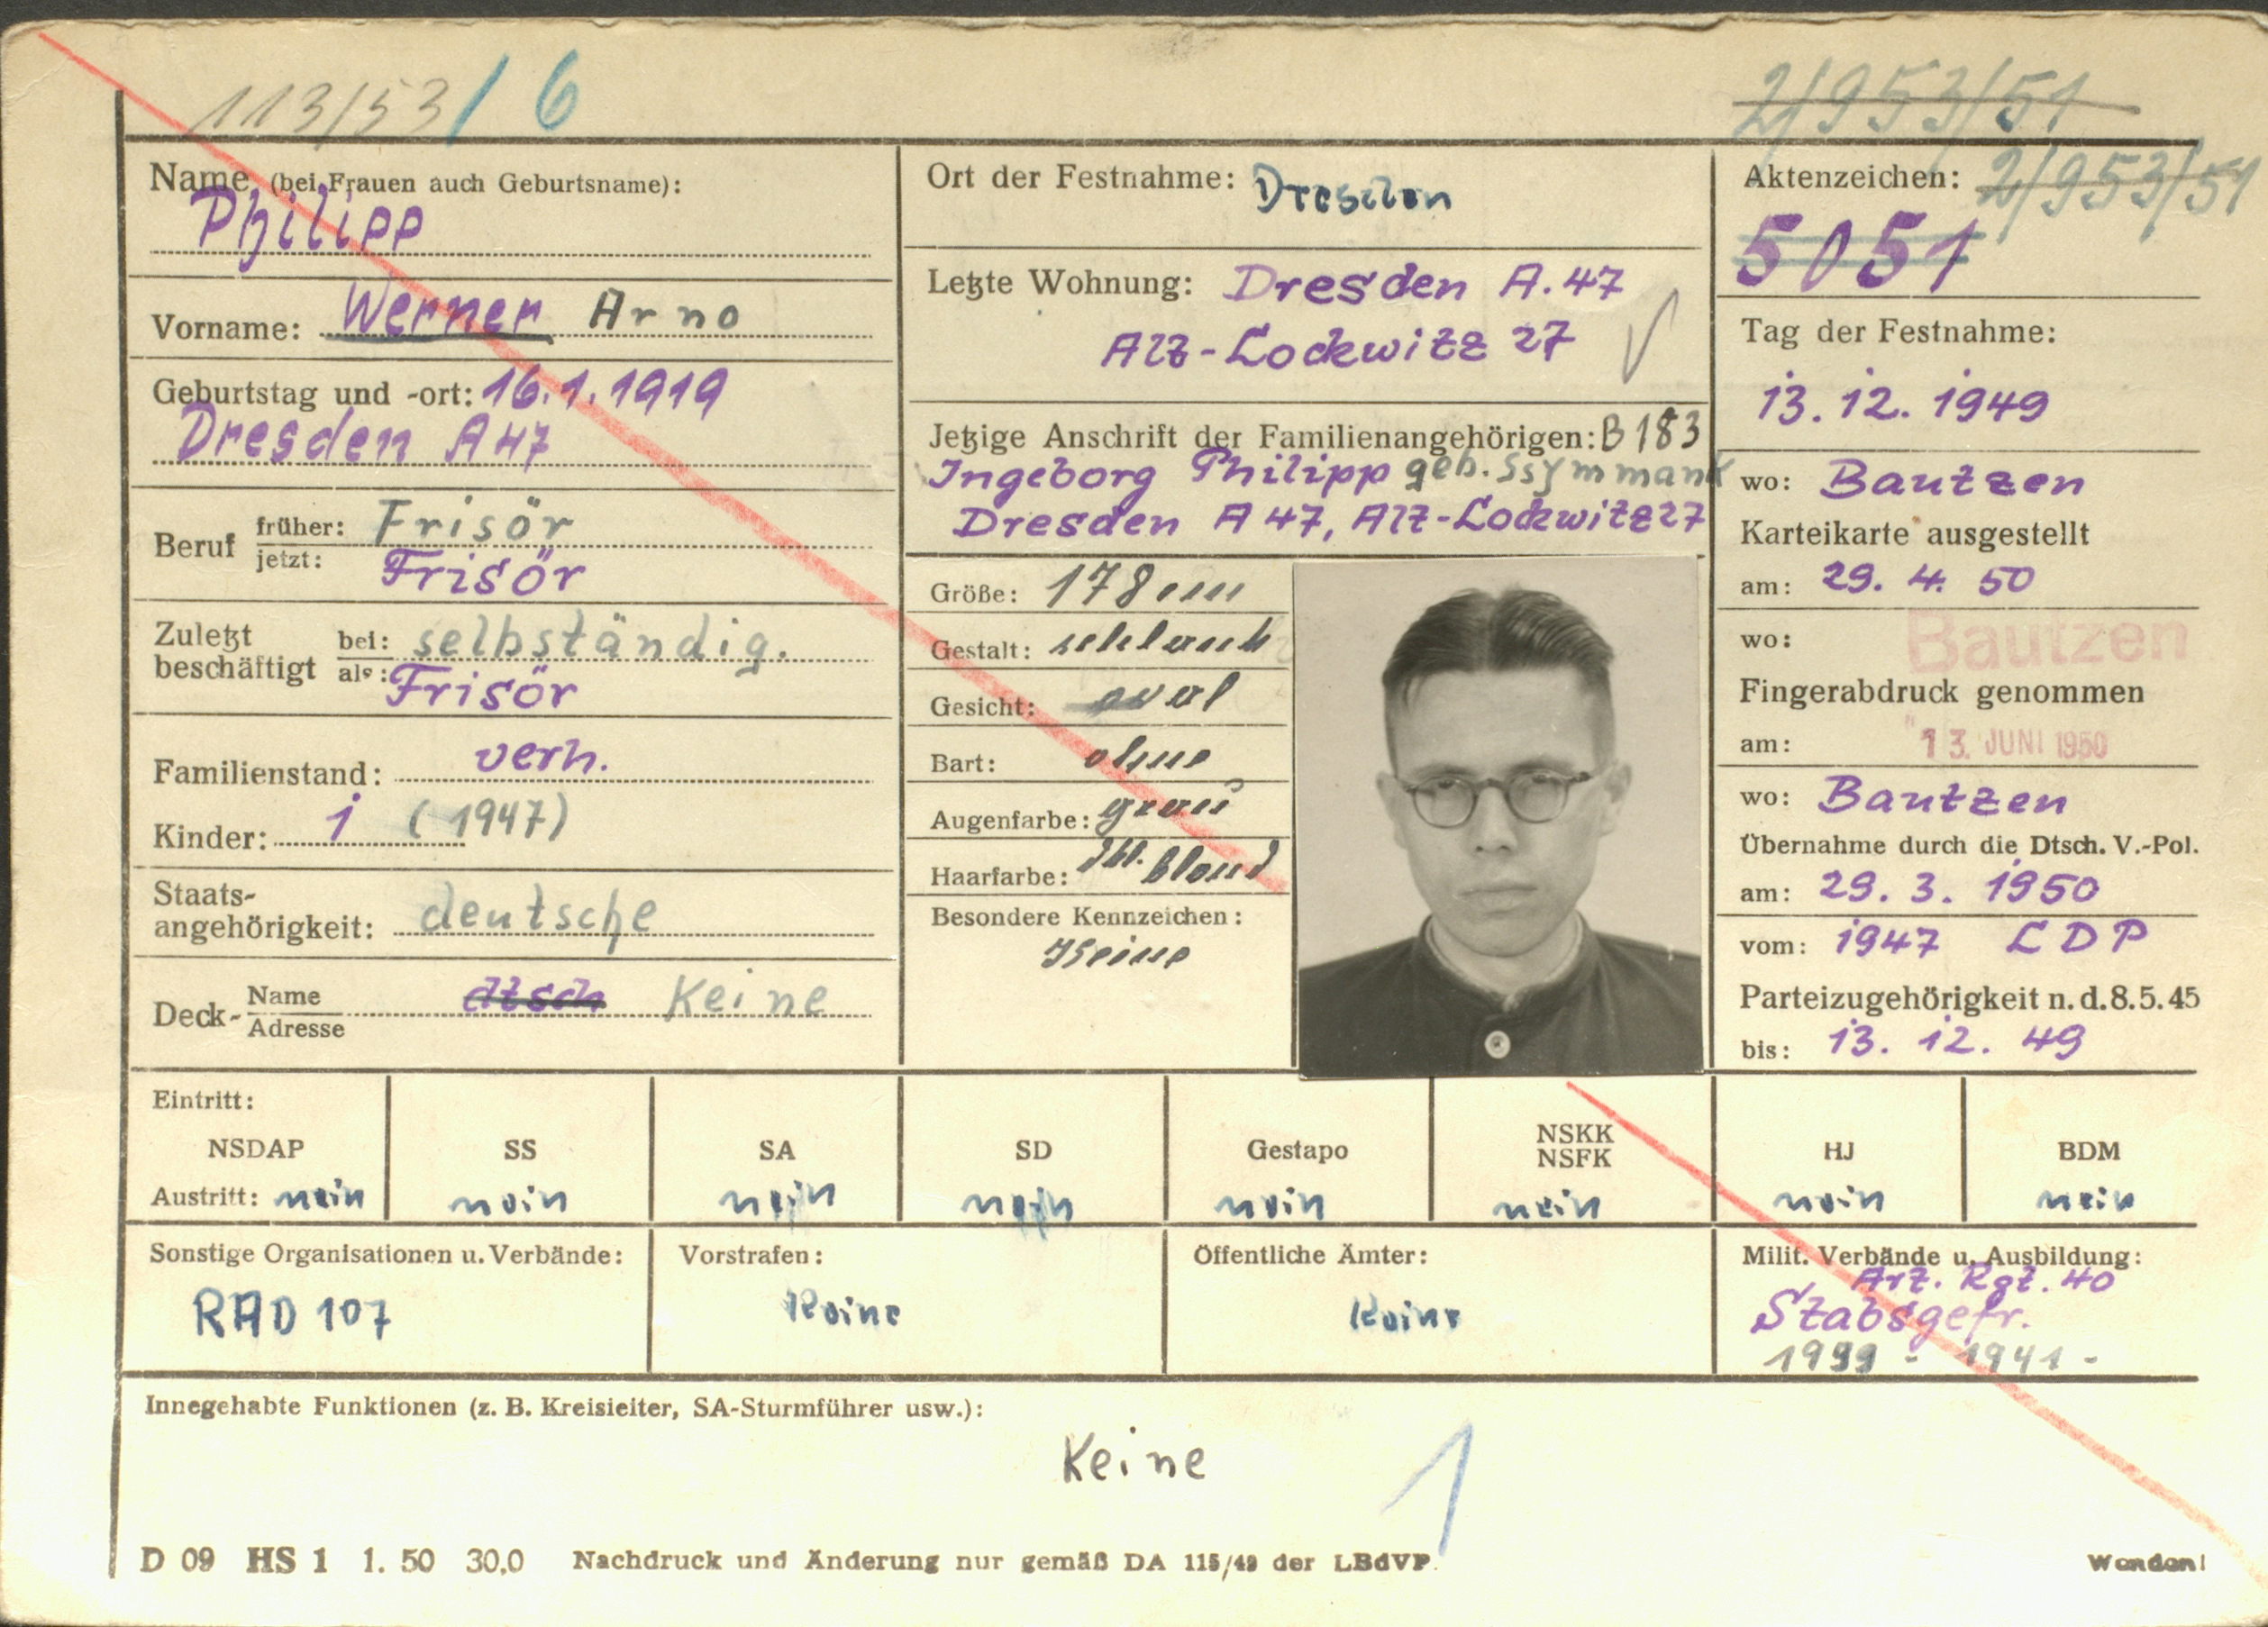 113/53/6
2/953/51
Name (bei Frauen auch Geburtsname):
Philipp
Vorname: Werner Arno
Geburtstag und -ort: 16.1.1919
Dresden A47
Beruf früher: Frisör
jetzt: Frisör
Zuletzt beschäftigt bei: selbständig.
als: Frisör
Familienstand: verh.
Kinder: 1 (1947)
Staats-
angehörigkeit: deutsche
Deck- Name
Adresse
dtsch Keine
Ort der Festnahme: Dresden
Letzte Wohnung: Dresden A. 47
Alt-Lockwitz 27
Jetzige Anschrift der Familienangehörigen: B 183
Ingeborg Philipp geb. Ssymmank
Dresden A 47, Alt-Lockwitz 27
Größe: 178 cm
Gestalt: schlank
Gesicht: oval
Bart: ohne
Augenfarbe: grau
Haarfarbe: dkl. blond
Besondere Kennzeichen:
Keine
Aktenzeichen: 2/953/51
5051
Tag der Festnahme:
13. 12. 1949
wo: Bautzen
Karteikarte ausgestellt
am: 29. 4. 50
wo: Bautzen
Fingerabdruck genommen
am: 13. JUNI 1950
wo: Bautzen
Übernahme durch die Dtsch. V.-Pol.
am: 29. 3. 1950
vom: 1947 LDP
Parteizugehörigkeit n. d. 8. 5. 45
bis: 13. 12. 49
Eintritt:
NSDAP SS SA SD Gestapo NSKK NSFK HJ BDM
Austritt: nein nein nein nein nein nein nein nein
Sonstige Organisationen u. Verbände:
RAD 107
Vorstrafen:
Keine
Öffentliche Ämter:
Keine
Milit. Verbände u. Ausbildung:
Art. Rgt. 40
Stabsgefr.
1939 - 1941 -
Innegehabte Funktionen (z. B. Kreisleiter, SA-Sturmführer usw.):
Keine
1
D 09 HS 1 1. 50 30,0 Nachdruck und Änderung nur gemäß DA 115/49 der LBdVP.
Wenden!